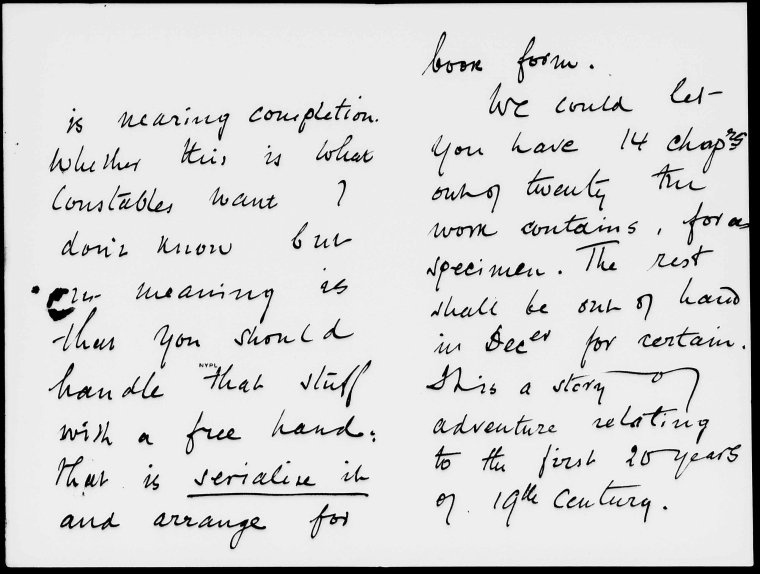 is nearing completion.
Whether this is what
Constables want I
don't know but
our meaning is
that you should
handle that stuff
NYPL
with a free hand:
that is serialise it
and arrange for
book form.
We could let
you have 14 chaprs
out of twenty the
work contains, for a
specimen. The rest
shall be out of hand
in Decer for certain.
It is a story of
adventure relating
to the first 20 years
of 19th Century.